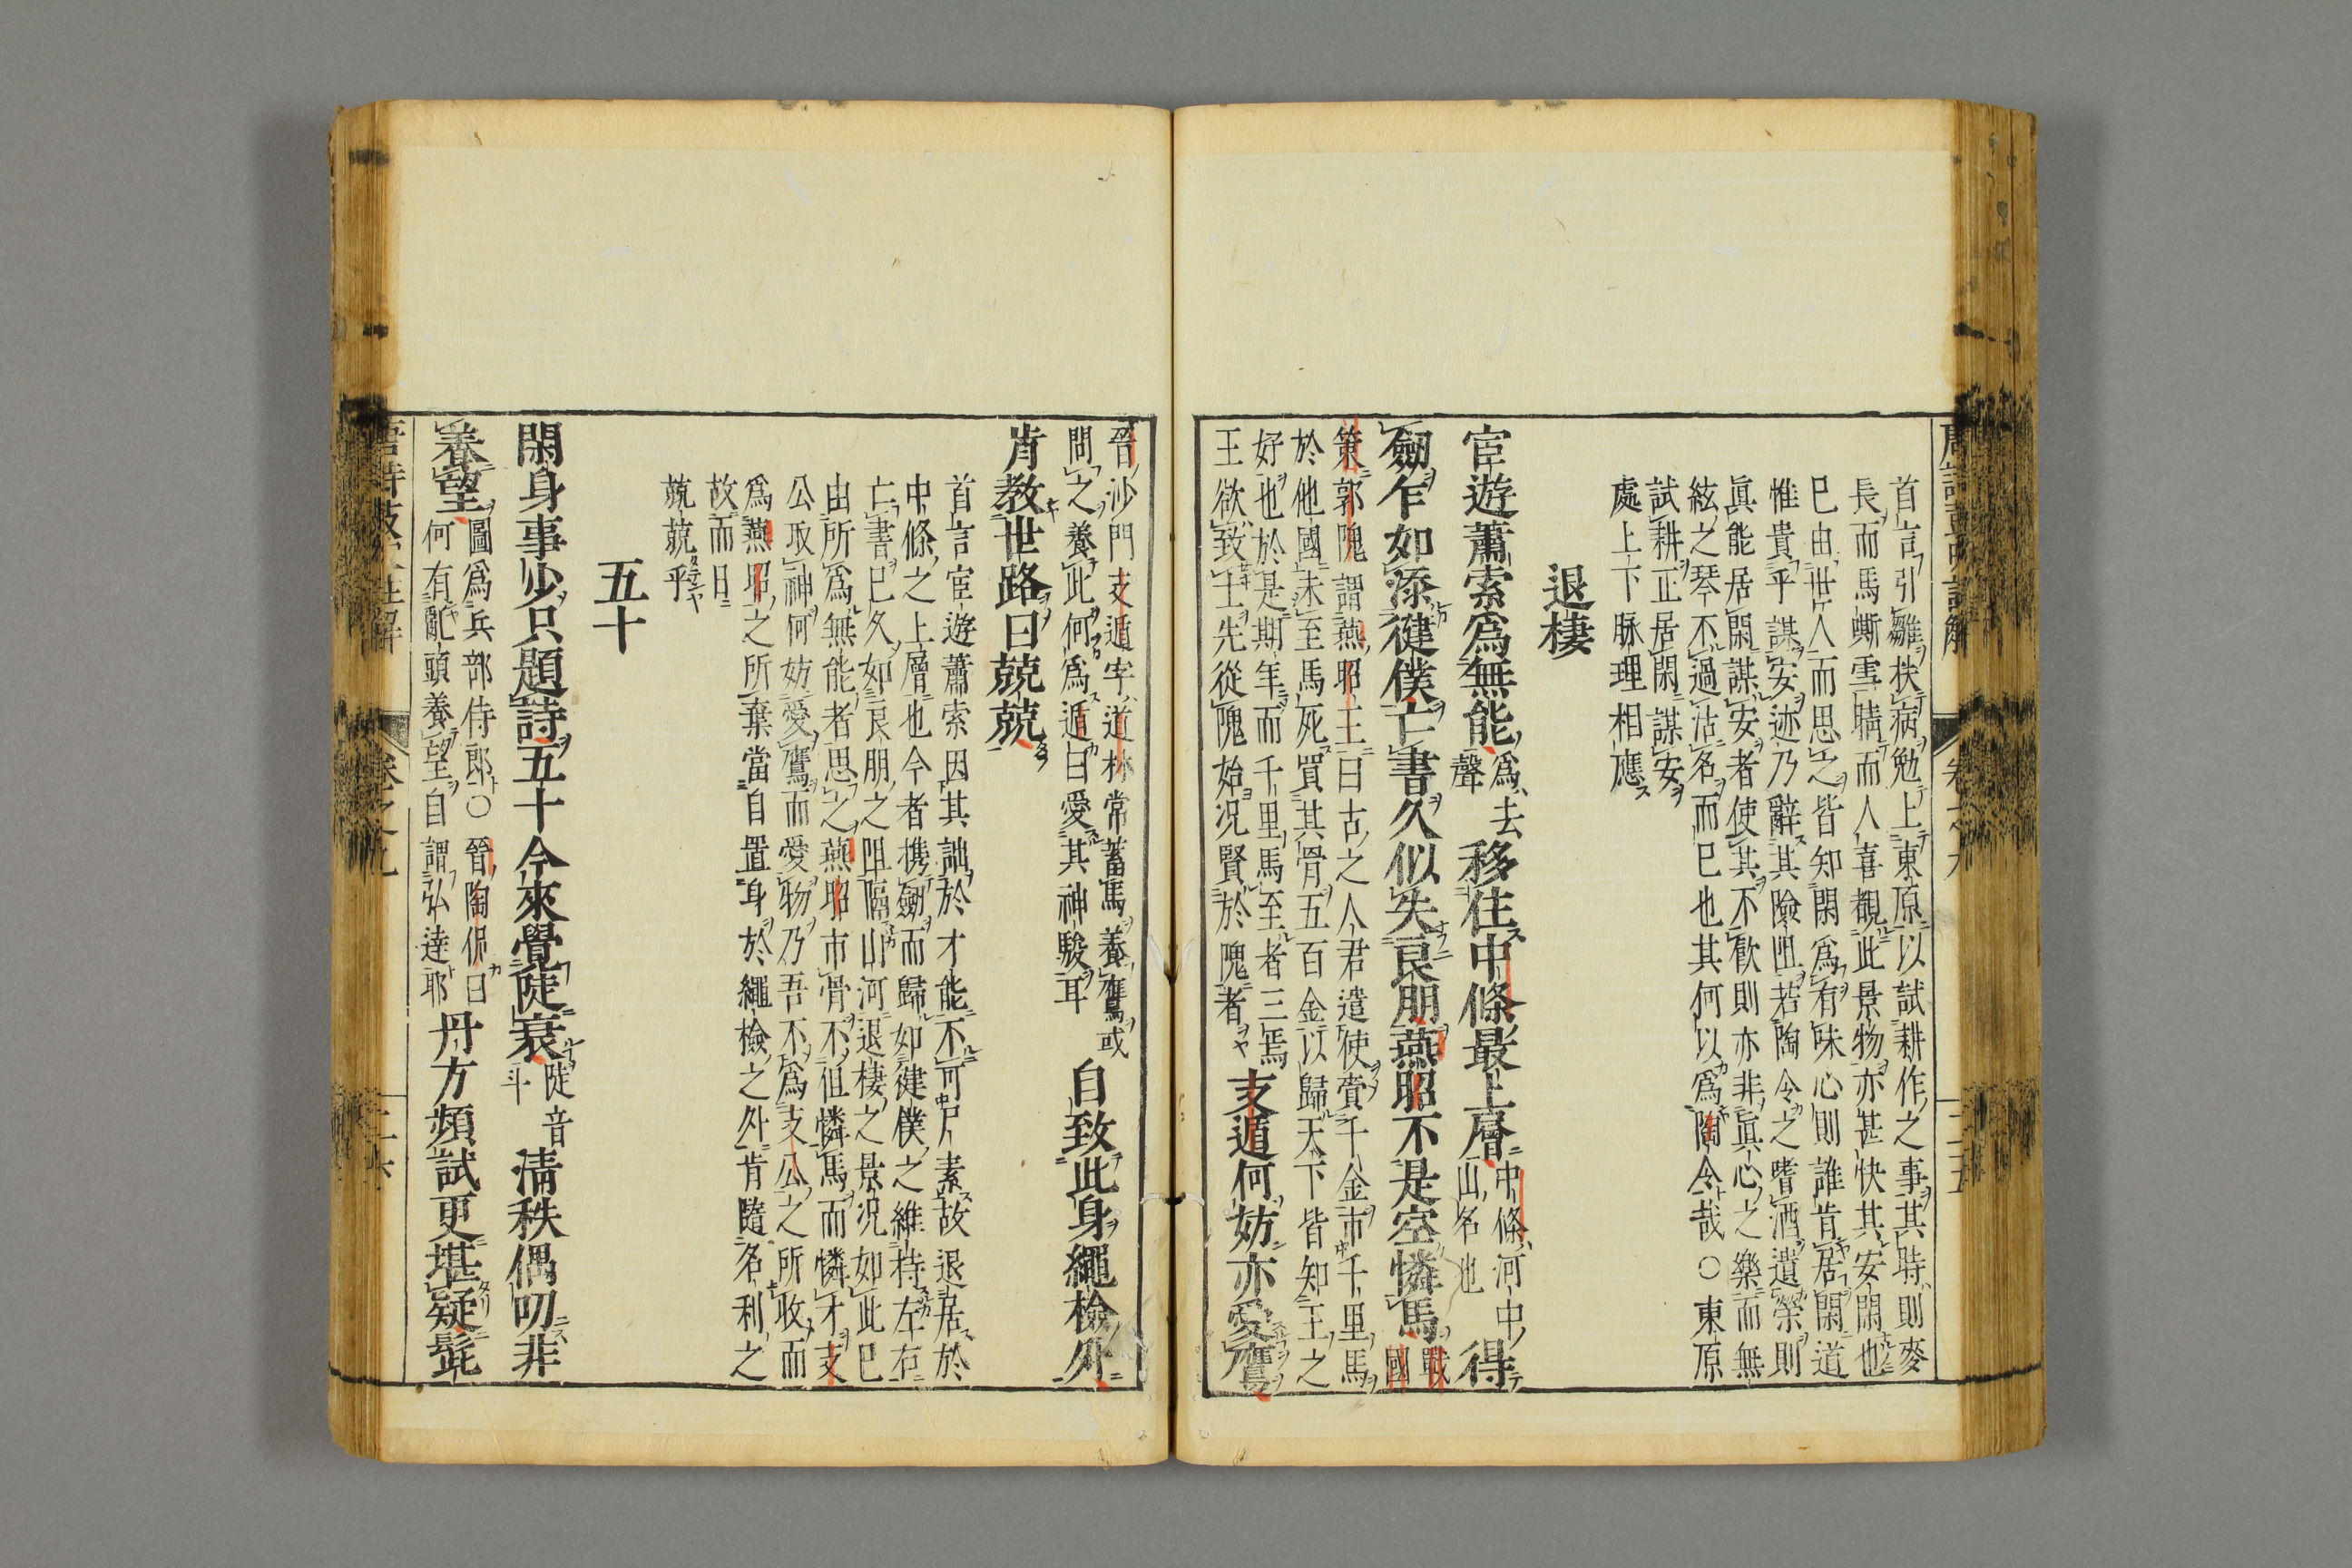 首言引雛扶病勉上東原以試耕作之事其時則麥
長而馬嘶雪晴而人喜觀此景物亦甚快其安閑也
已由世人而思之皆知閑爲有味心則誰肯居閑道
惟貴乎謀安迹乃辭其險阻若陶令之嗜酒遺榮則
眞能居閑謀安者使其不歡則亦非眞心之樂而無
絃之琴不過沽名而已也其何以爲陶令哉○東原
試耕正居閑謀安
處上下脉理相應
退棲
宦遊蕭索爲無能爲去聲移住中條最上層中條河中山名也得
劒乍如添健僕亡書久似失良朋燕昭不是空憐馬戰國
策郭隗謂燕昭王曰古之人君遣使賫千金市千里馬
於他國未至馬死買其骨五百金以歸天下皆知王之
好也於是期年而千里馬至者三焉
王欲致士先從隗始况賢於隗者支遁何妨亦愛鷹
晉沙門支遁字道林常蓄馬養鷹或
問之養此何爲遁曰愛其神駿耳自致此身繩檢外
肯教世路日兢兢
首言宦遊蕭索因其詘於才能不可尸素故退居於
中條之上層也今者携劒而歸如健僕之維持左右
亡書已久如良朋之阻隔山河退棲之景况如此已
由所爲無能者思之燕昭市骨不但憐馬而憐才支
公取神何妨愛鷹而愛物乃吾不爲支公之所收而
爲燕昭之所棄當自置身於繩檢之外肯隨名利之
故而日
兢兢乎
五十
閑身事少只題詩五十今來覺陡衰陡音斗清秩偶叨非
養望圖爲兵部侍郎○晉陶侃曰何有亂頭養望自謂弘達耶丹方頻試更堪疑髭
卷之九
二十六